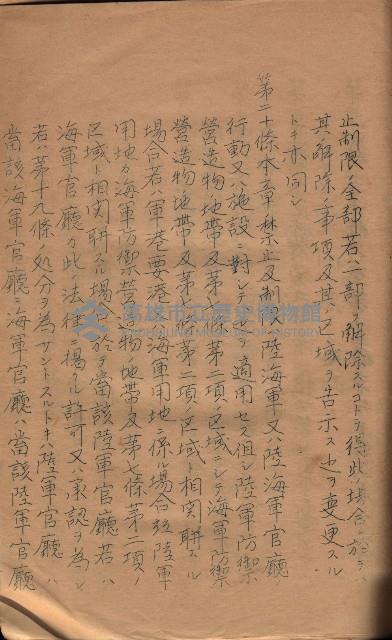 止制限ノ全部若ハ一部ヲ解除スルコトヲ得此ノ場合ニ於テハ
其ノ解除ノ事項及其ノ区域ヲ告示ス之ヲ変更スル
トキ亦同シ
第二十條本章ノ禁止及制 ハ陸海軍又ハ陸海軍官廳ノ
行動又ハ施設ニ対シテハ之ヲ適用セス但シ陸軍防禦
營造物地帯及第 條第二項ノ区域ニシテ海軍防禦
營造物地帯及第 條第二項ノ区域ト相関聨スル
場合若ハ軍港要港 海軍用地ニ係ル場合又ハ陸軍
用地カ海軍防禦營 物地帯及第七條第二項ノ
区域ト相関聨スル場 於テ当該陸軍官廳若ハ
海軍官廳カ此ノ法律ニ掲クル許可又ハ承認ヲ為シ
若ハ第十九條ノ処分ヲ為サントスルトキハ陸軍官廳ハ
當該海軍官廳ニ海軍官廳ハ當該陸軍官廳
高雄市立歷史博物館
KAOHSIUNG MUSEUM OF HISTORY